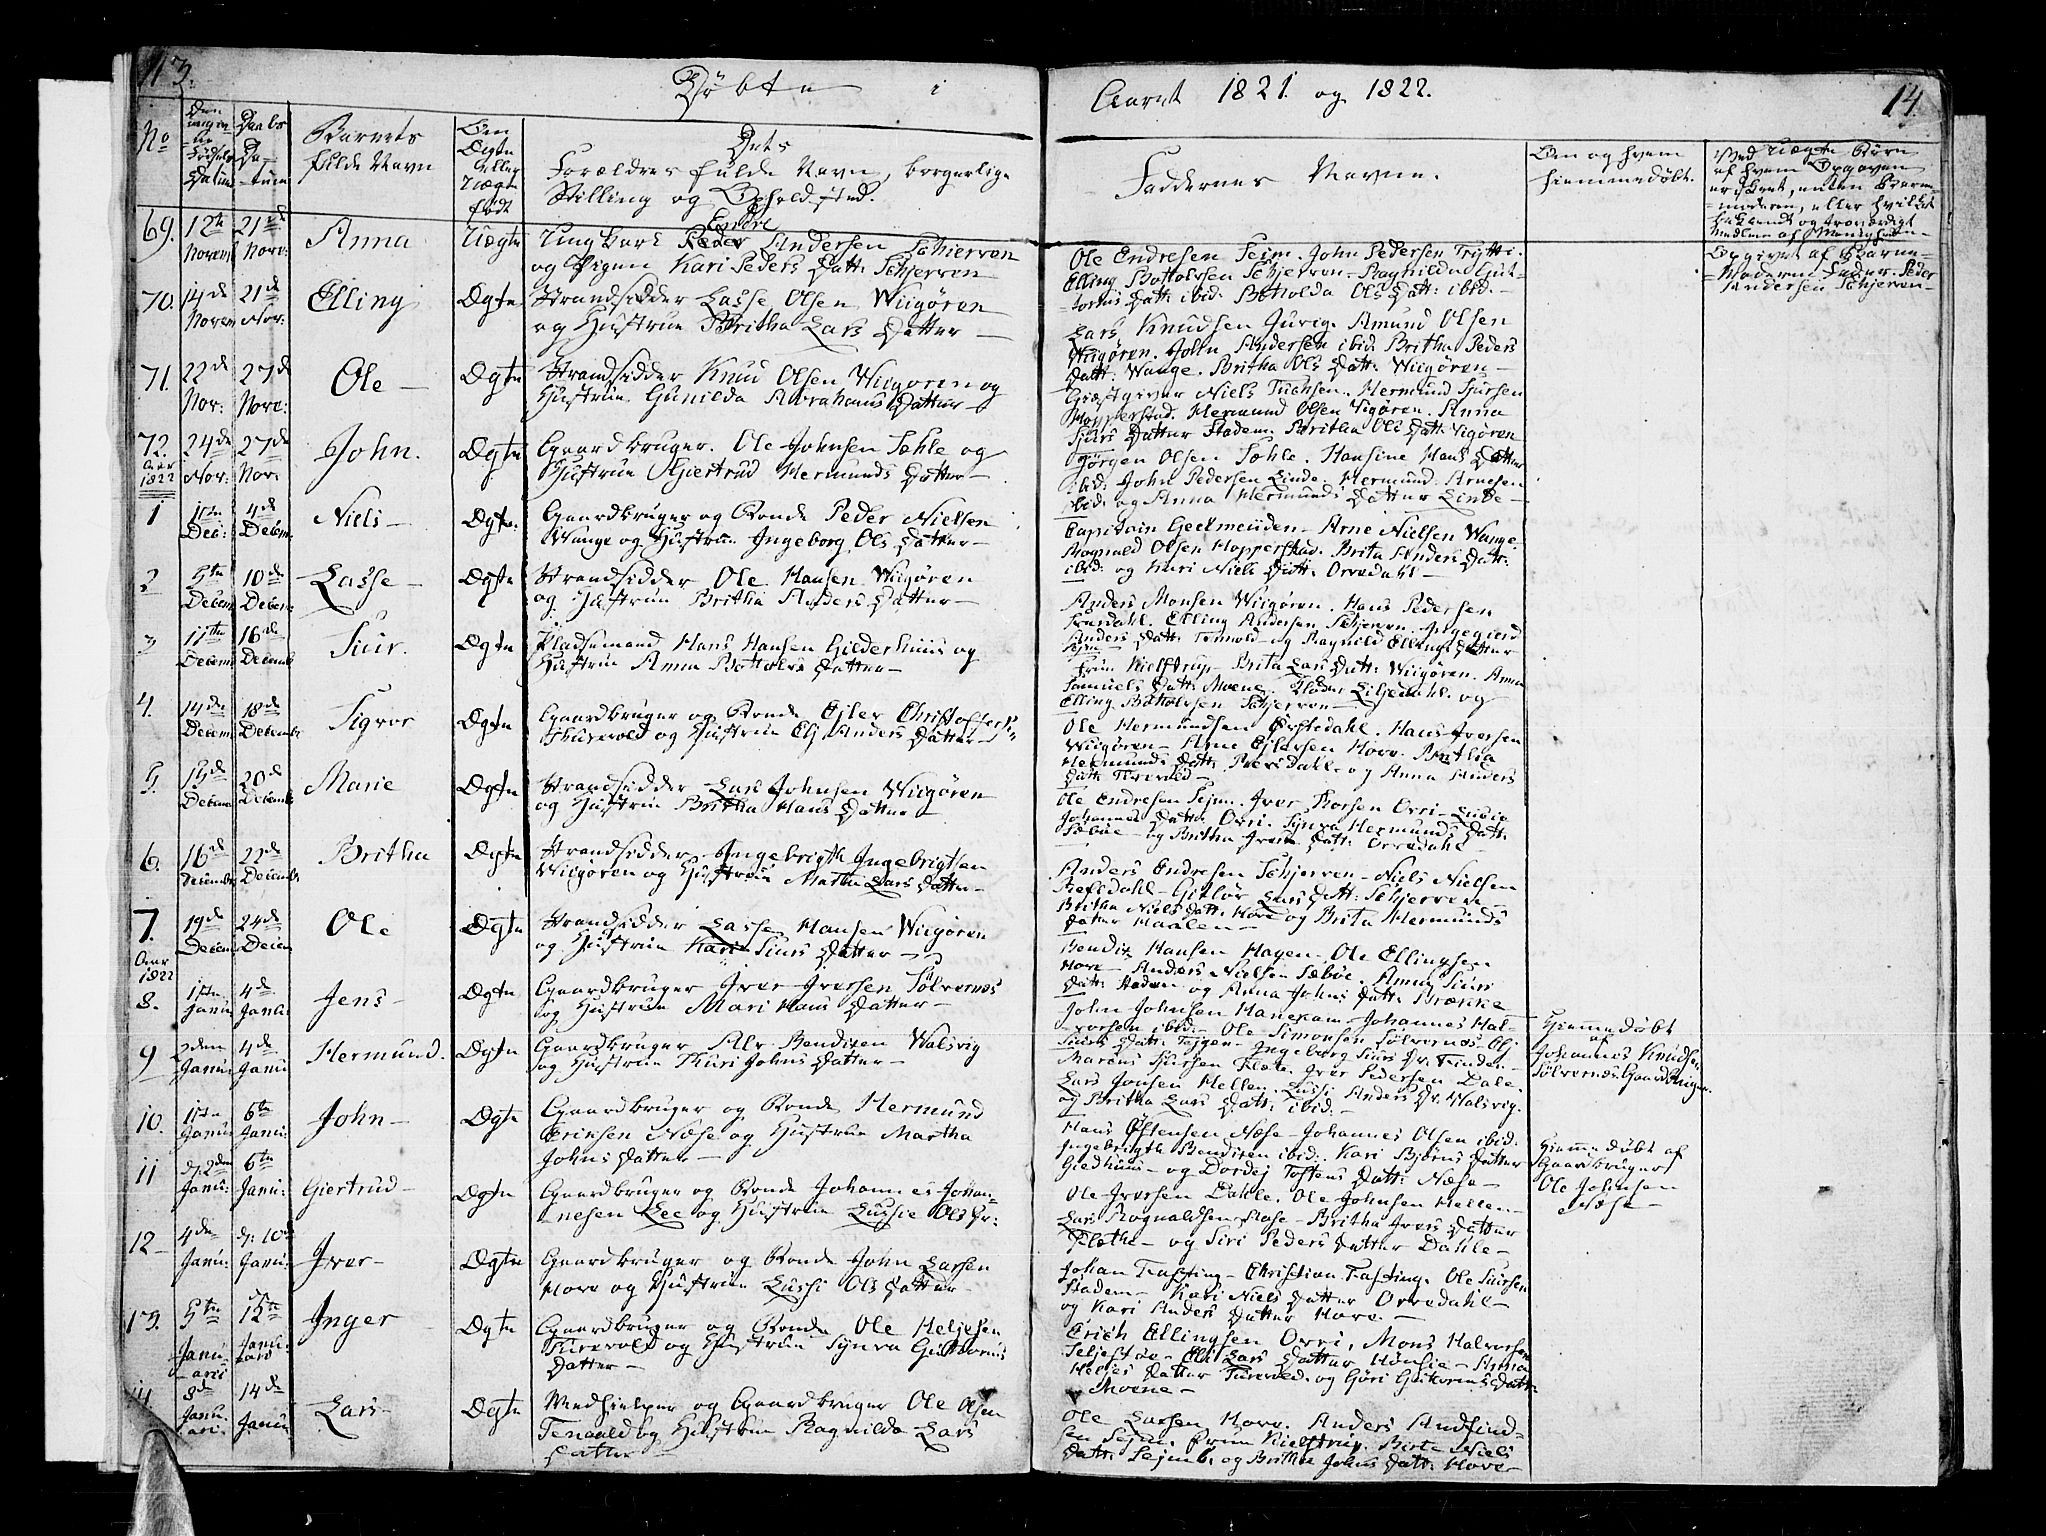 13.
Døbte i
Aaret 1821. og 1822.
14.
No
Den
Fødsels
Datum
Daabs
Da-
-tum
Barnets
fulde Navn
Om
Ægte
eller
Uægte
født
Dets
Forældres fulde Navn, borgerlige
Stilling og Opholdssted.
Faddernes Navne.
Om og hvem
hiemmedøbt.
Ved Uægte Børn
af hvem Opgaven
er skeet, enten Barne-
-moderen, eller hvilket
bekiendt og troværdigt
Medlem af Menigheden
69. 12te Novem 21de Nove: Anna Uægte Ungkarl Peder Endre Andersen Schierven
og Pigen Kari Peders Datt: Schjerven
Ole Endresen Seim. John Pedersen Trytti.
Elling Bottolvsen Schjerven. Ragnilda Gut-
-torms Datt: ibid. Botholda Ols Datt: ibid. -
Opgivet af Barne-
-Moderens Fader Peder
Andersen Schjerven-
70. 14de Novem 21de Nov: Elling Ægte Strandsidder Lasse Olsen Wiigøren
og Hustrue Britha Lars Datter -
Lars Knudsen Jurig. Amund Olsen
Wiigøren. John Andersen ibid. Britha Peders
Datt: Wange. Britha Ols Datt: Wiigøren -
71. 22de Nov: 27de Nove: Ole - Ægte Strandsidder Knud Olsen Wiigøren og
Hustrue Gunilda Abrahams Datter -
Giæstgiver Niels Fuchsen. Hermund Sjursen
Hopperstad. Hermund Olsen Vigøren. Anna
Sjurs Datter Stadem. Britha Ols Datt: Vigøren
72. 24de Nov: 27de Nov: John. Ægte Gaardbruger. Ole Johnsen Sæhle og
Hustrue Gjertrud Hermunds Datter -
Jørgen Olsen Sæhle. Hansine Hans Datter
ibid. John Pedersen Linde. Hermund Arnesen
ibid. og Anna Hermunds Datter Linde -
Aar
1822
1 1ste Dec: 4de Decem. Niels - Ægte. Gaardbruger og Bonde Peder Nielsen
Wange og Hustrue Ingeborg Ols Datter -
Capitain Geelmeiden - Arne Nielsen Wange.
Rognald Olsen Hopperstad. Brita Anders Datt:
ibid: og Kari Niels Datt: Orvedahl -
2 5te Decem 10de Decem: Lasse - Ægte Strandsidder Ole Hansen Wiigøren
og Hustrue Britha Anders Datter -
Anders Monsen Wiigøren. Hans Pedersen
Elling Andersen Schjerven. Ingegierd
Anders Datt: Tennold - og Ragnild Ellings Datter
Sejm -
3 11te Decem 16de Decemb Siur. Ægte Pladsemand Hans Hansen Gilderhuus og
Hustrue Anna Bottolvs Datter -
Frue Kielstrup - Brita Lars Datt: Wiigøren. Anna
Samuels Datt: Moene. Peder Liljedahl. og
Elling Bottolvsen Schjerven -
4. 14de Decem 18de Decembr Sigvor Ægte Gaardbruger og Bonde Ejler Christoffersen
Thurevold og Hustrue Elj Anders Datter -
Ole Hermundsen Ørstedahl. Hans Iversen
Wiigøren - Arne Ejlersen Hove. Britha
Hermunds Datt: og Anna Anders
Datt: Turevold -
5. 15de Decem 20de Decemb Marie Ægte Strandsidder Lars Johnsen Wiigøren
og Hustrue Britha Hans Datter -
Ole Endresen Sejm. Iver Thorsen Orri -
Johannes Datt: Orri. Synva Hermunds Datt:
Sæbøe - og Britha Iver Datt: Orvedahl -
6. 16de Decembr 22de Decembr Britha Ægte Strandsidder Ingebrigth Ingebrigtsen
Wiigøren og Hustrue Martha Lars Datter -
Anders Endresen Schjerven - Niels Nielsen
Refsdahl - Gitlør Lars Datt: Schjerven -
Britha Niels Datt: Hove og Brita Hermunds
Datter Haalen -
7. 19de Decem 24de Decem Ole Ægte Strandsidder Lasse Hansen Wiigøren
og Hustrue Kari Siurs Datter -
Bendix Hansen Hagen. Ole Ellingsen
Hove - Anders Nielsen Sæbøe. Anna Siurs
Datt: Stadem og Anna Johns Datt: Brække -
Aar
1822
8. 1ste Janu: 4de Janu: Jens - Ægte Gaardbruger Iver Iversen Sølvernæs
og Hustrue Mari Hans Datter -
John Johnsen Hanekam - Johannes Hal-
-vorsen ibid. - Ole Simonsen Sølvernæs - Elj
Siurs Datt: - Ingeborg Siurs Dr. Finden -
Hiemmedøbt
af
Johannes Knudsen
Sølvernæs. Gaardbruger
9 2den Janu: 4de Janu: Hermund. Ægte Gaardbruger Alv Bendixen Walsvig
og Hustrue Kari Johns Datter -
Marcus Sjursen Flæte. Iver Pedersen Dale.
Lars Jonsen Hellen. Lussi Anders Dr. Walsvig.
og Britha Lars Datt: ibid. -
10. 1ste Janu: 6te Janu: John - Ægte Gaardbruger og Bonde Hermund
Erichsen Næse og Hustrue Martha
Johns Datter -
Hans Østensen Næse - Johannes Olsen ibid.
Ingebrigth Bendixen ibid. Kari Bjørns Datter
Giedhuus - og Dordej Tostens Datt: Næse -
Hiemmedøbt af
Gaardbruger
Ole Johnsen
Næse -
11 d. 2den Janu: 6te Janu: Giertrud - Ægte Gaardbruger og Bonde Johannes Johan-
-nesen Lee og Hustrue Lussie Ols Dr:
Ole Iversen Dahle. Ole Johnsen Hellen -
Lars Rognaldsen Næse - Britha Ivers Datter
Flæthe - og Siri Peders Datter Dahle -
12 - 4de Janu: d: 10de Janu: Iver - Ægte Gaardbruger og Bonde John Larsen
Hove og Hustrue Lussi Ols Datter -
Johan Fasting - Christian Fasting. Ole Siursen
Stadem - Kari Niels Datter Orvedahl -
og Kari Anders Datter Hove. -
13. 5te Janu- -arii 12te Janu- arii Inger Ægte Gaardbruger og Bonde Ole Heljesen
Turevold og Hustrue Synva Guttorms
Datter -
Erich Ellingsen Orri, Mons Halvorsen
Eli Lars Datter Hønsie - Anna
Heljes Datter Turevold. og Gøri Guttorms Datt:
Moene -
14 8de Janu- -arii 14de Janu Lars - Ægte Medhielper og Gaardbruger Ole Olsen
Tenaald og Hustrue Ragnilda Lars
Datter -
Ole Larsen Hove. Anders Andfind-
sen Sejm. Frue Kielstrup. Birte Niels
Datt: Sejm. og Britha Johns Datt: Hove -